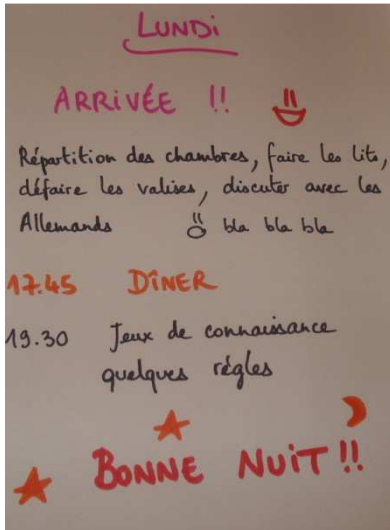 LUNDi
ARRiVÉE !!
Répartition des chambres, faire les lits,
défaire les valises, discuter avec les
Allemands bla bla bla
17.45 DÎNER
19.30 Jeux de connaissance
quelques règles
BONNE NUiT !!